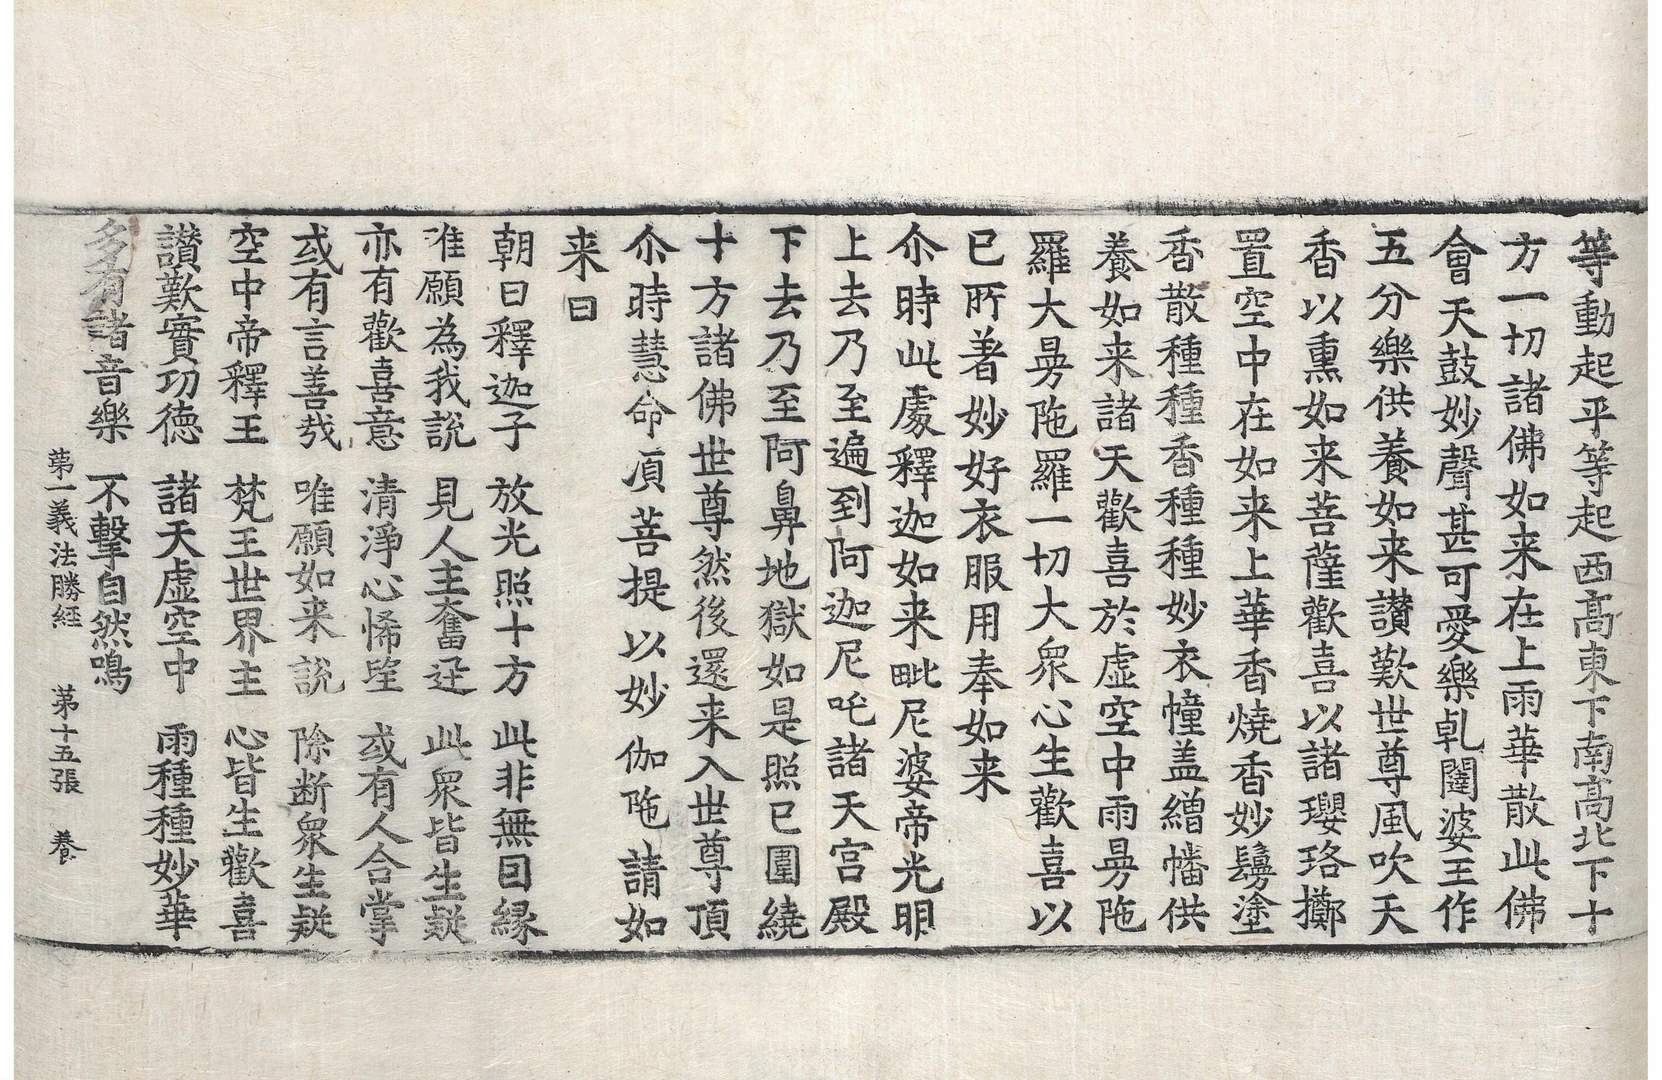 等動起平等起西髙東下南髙北下十
方一切諸佛如来在上雨華散此佛
會天鼓妙聲甚可愛樂乹闥婆王作
五分樂供養如来讃歎世尊風吹天
香以熏如来菩薩歡喜以諸瓔珞擲
置空中在如来上華香燒香妙鬘塗
香散種種香種種妙衣幢盖繒幡供
養如来諸天歡喜於虚空中雨㬅陁
羅大㬅陁羅一切大衆心生歡喜以
已所著妙好衣服用奉如来
尒時此處釋迦如来毗尼婆帝光明
上去乃至遍到阿迦尼吒諸天宫殿
下去乃至阿鼻地獄如是照已圍繞
十方諸佛世尊然後還来入世尊頂
尒時慧命湏菩提以妙伽陁請如
来曰
朝日釋迦子　放光照十方　此非無回縁
唯願為我説　見人主奮迅　此衆皆生疑
亦有歡喜意　清淨心悕望　或有人合掌
或有言善㢤　唯願如来説　除断衆生疑
空中帝釋王　梵王世界主　心皆生歡喜
讃歎實功徳　諸天虚空中　雨種種妙華
多有諸音樂　不擊自然鳴
第一義法勝經　第十五張　養